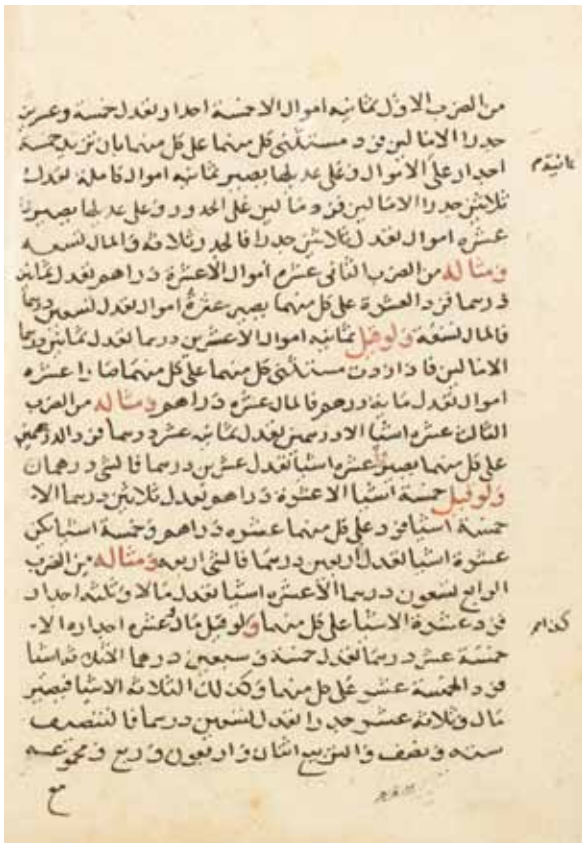 من الضرب الاول ثمانيه اموال الا خمسة اجدار تعدل خمسة وعشرين
جدرا الا مالين فزد مستثنى كل منهما على كل منهما بان تزيد خمسة
اجدار على الاموال وعلى عديلها يصير ثمانيه اموال كاملة تعدل
ثلاثين جدرا الا مالين فزد مالين على الجدور وعلى عديلها يصير
عشره اموال تعدل ثلاثين جدرا فالجدر ثلاثه والمال تسعه
ومثاله من الضرب الثانى عشره اموال الا عشرة دراهم تعدل ثمانين
درهما فزد العشرة على كل منهما يصير عشرة اموال تعدل تسعين درهما
فالمال تسعة ولو قيل ثمانيه اموال الا عشرين درهما تعدل ثمانين درهما
الا مالين فاذا زدت مستثنى كل منهما على كل منهما صارا عشره
اموال تعدل مايه درهم فالمال عشره دراهم ومثاله من الضرب
الثالث عشره اشيا الا درهمين تعدل ثمانيه عشر درهما فزد الدرهمين
على كل منهما يصير عشره اشيا تعدل عشرين درهما فالشى درهمان
ولو قيل خمسة اشيا الا عشرة دراهم تعدل ثلاثين درهما الا
خمسة اشيا فزد على كل منهما عشره دراهم وخمسة اشيا تكن
عشرة اشيا تعدل اربعين درهما فالشى اربعه ومثاله من الضرب
الرابع تسعون درهما الا عشره اشيا تعدل مالا وثلثه اجدار
فزد عشرة الاشيا على كل منهما ولو قيل مال وعشره اجداره الا
خمسة عشر درهما تعدل خمسة وسبعين درهما الا ثلاثه اشيا
فزد الخمسة عشر على كل منهما وكذلك الثلاثه الاشيا فيصير
مال وثلاثة عشر جدرا تعدل تسعين درهما فالتنصيف
سته ونصف والتربيع اثنان واربعون وربع ومجموعه
مع